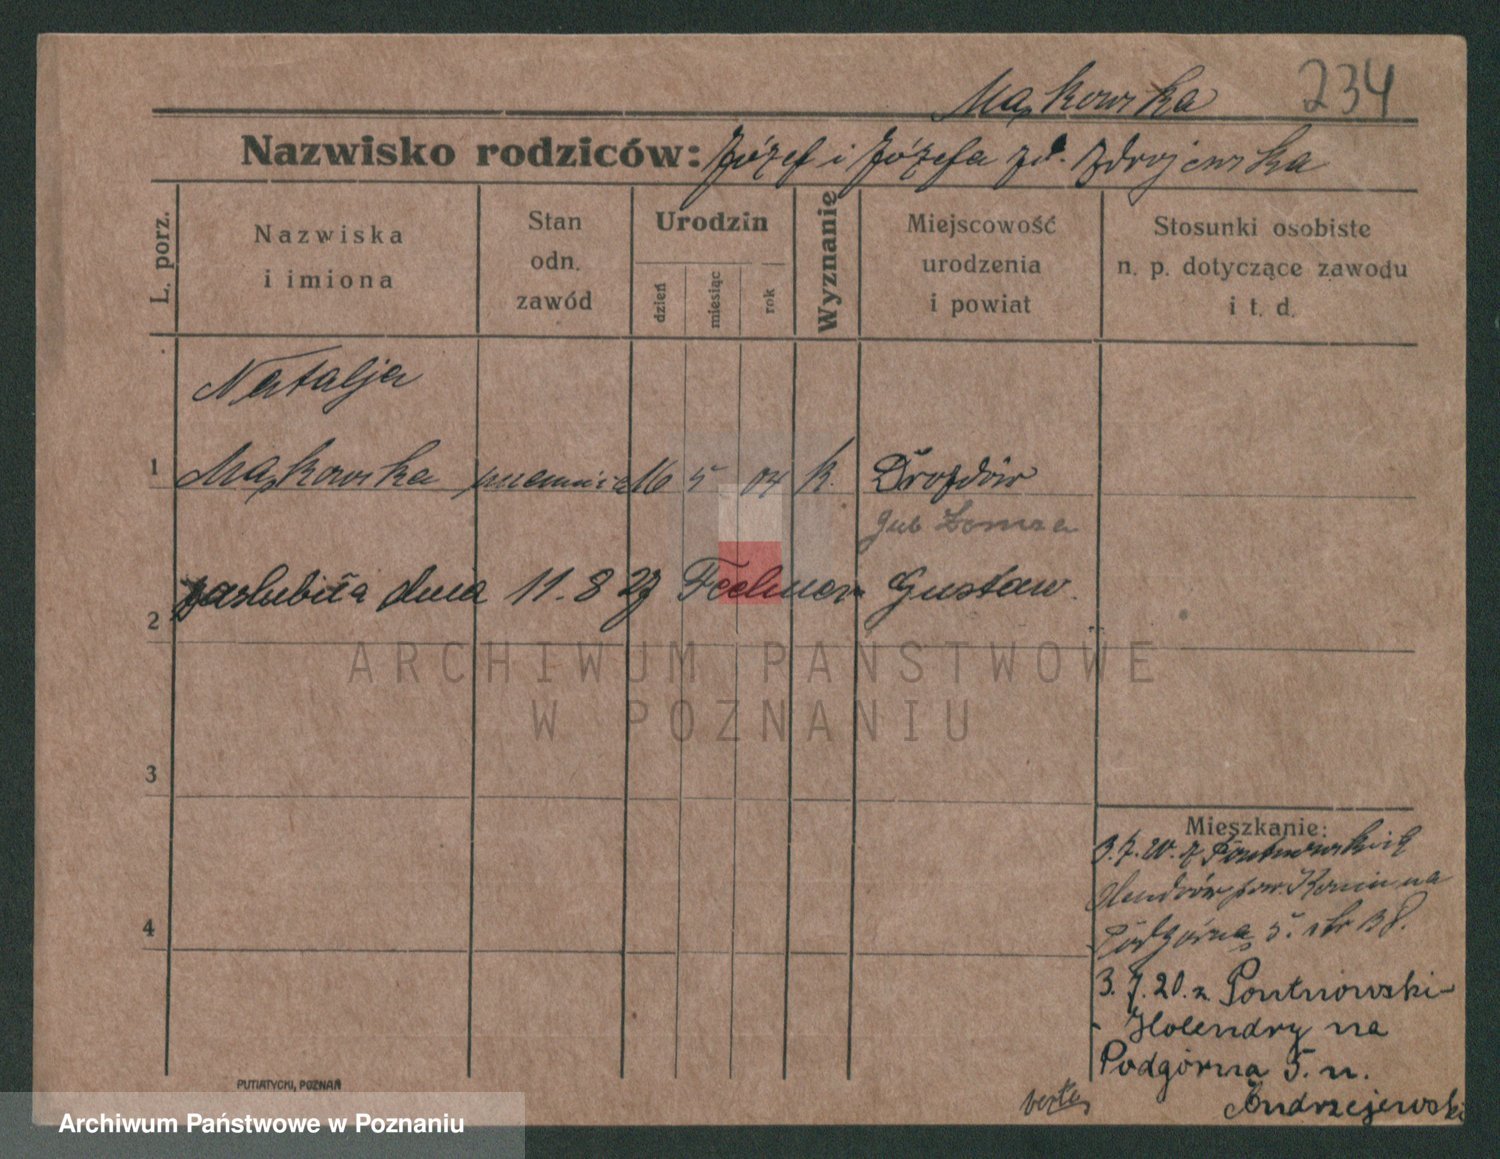 Mąkowska 234
Nazwisko rodziców: Józef i Józefa zd. Zdrojewska
L. porz.
Nazwiska
i imiona
Stan
odn.
zawód
Urodzin
dzień
miesiąc
rok
Wyznanie
Miejscowość
urodzenia
i powiat
Stosunki osobiste
n. p. dotyczące zawodu
i t. d.
Natalja
1 Mąkowska 16 5 04 k. Drozdów
gub Łomza
zaślubiła dnia 11.8 27 Gustaw.
2
ARCHIWUM PAŃSTWOWE
W POZNANIU
3
Mieszkanie:
3.7.20. z
pow. Konin na
4
Podgórna 5.
3.7.20. z Pontnowski-
- Holendry na
Podgórna 5. u.
Andrzejewski
verte
PUTIATYCKI, POZNAŃ
Archiwum Państwowe w Poznaniu